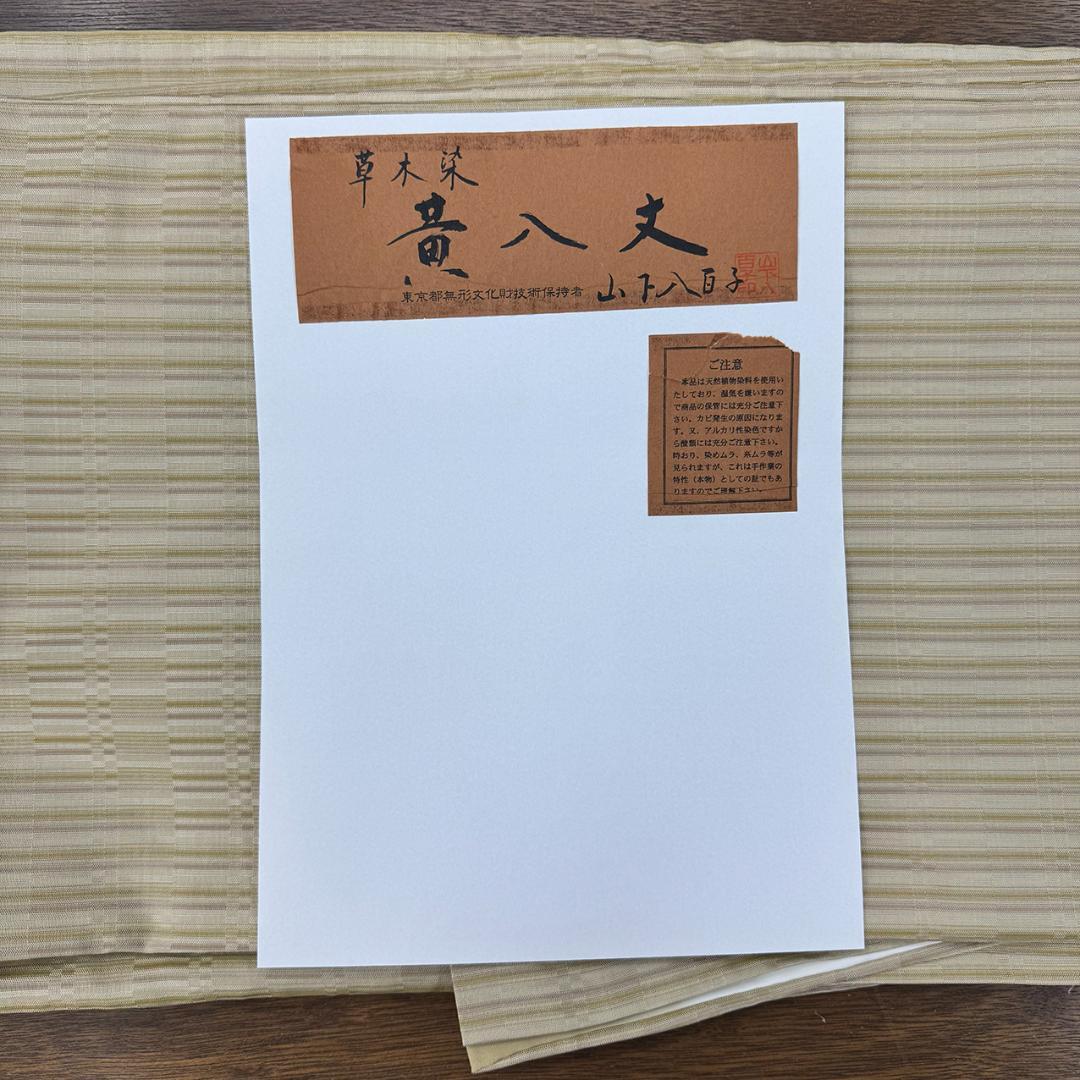 草木染
黄八丈
東京都無形文化財技術保持者 山下八百子
ご注意
本品は天然植物染料を使用い
たしており、湿気を嫌いますの
で商品の保管には充分ご注意下
さい。カビ発生の原因になりま
す。又、アルカリ性染色ですか
ら酸類には充分ご注意下さい。
時おり、染めムラ、糸ムラ等が
見られますが、これは手作業の
特性（本物）としての証でもあ
りますのでご理解下さい。